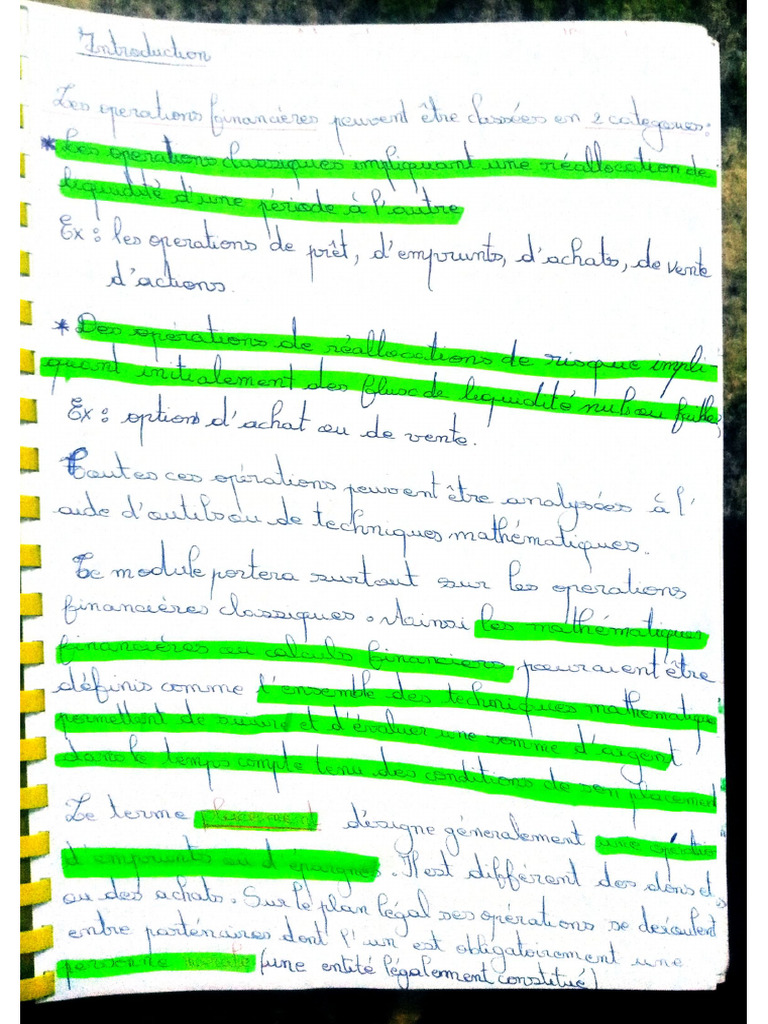 Introduction
Les operations financières peuvent être classées en 2 categories:
* Les operations classiques impliquant une réallocation de
liquidité d'une période à l'autre
Ex : les operations de prêt, d'emprunts, d'achats, de vente
d'actions.
* Des opérations de réallocations de risque impli-
quant initialement des flux de liquidité nuls ou faible,
Ex : options d'achat ou de vente.
Toutes ces opérations peuvent être analysées à l'
aide d'outils ou de techniques mathématiques.
Ce module portera surtout sur les operations
financières classiques. Ainsi les mathématiques
financières ou calculs financiers pourraient être
définis comme l'ensemble des techniques mathématique
permettent de suivre et d'évaluer une somme d'argent
dans le temps compte tenu des conditions de son placement
Le terme placement désigne généralement une opératio
d'emprunts ou d'épargnes. Il est différent des dons et
ou des achats. Sur le plan légal ses opérations se deroulent
entre partenaires dont l'un est obligatoirement une
personne morale (une entité légalement constitué)